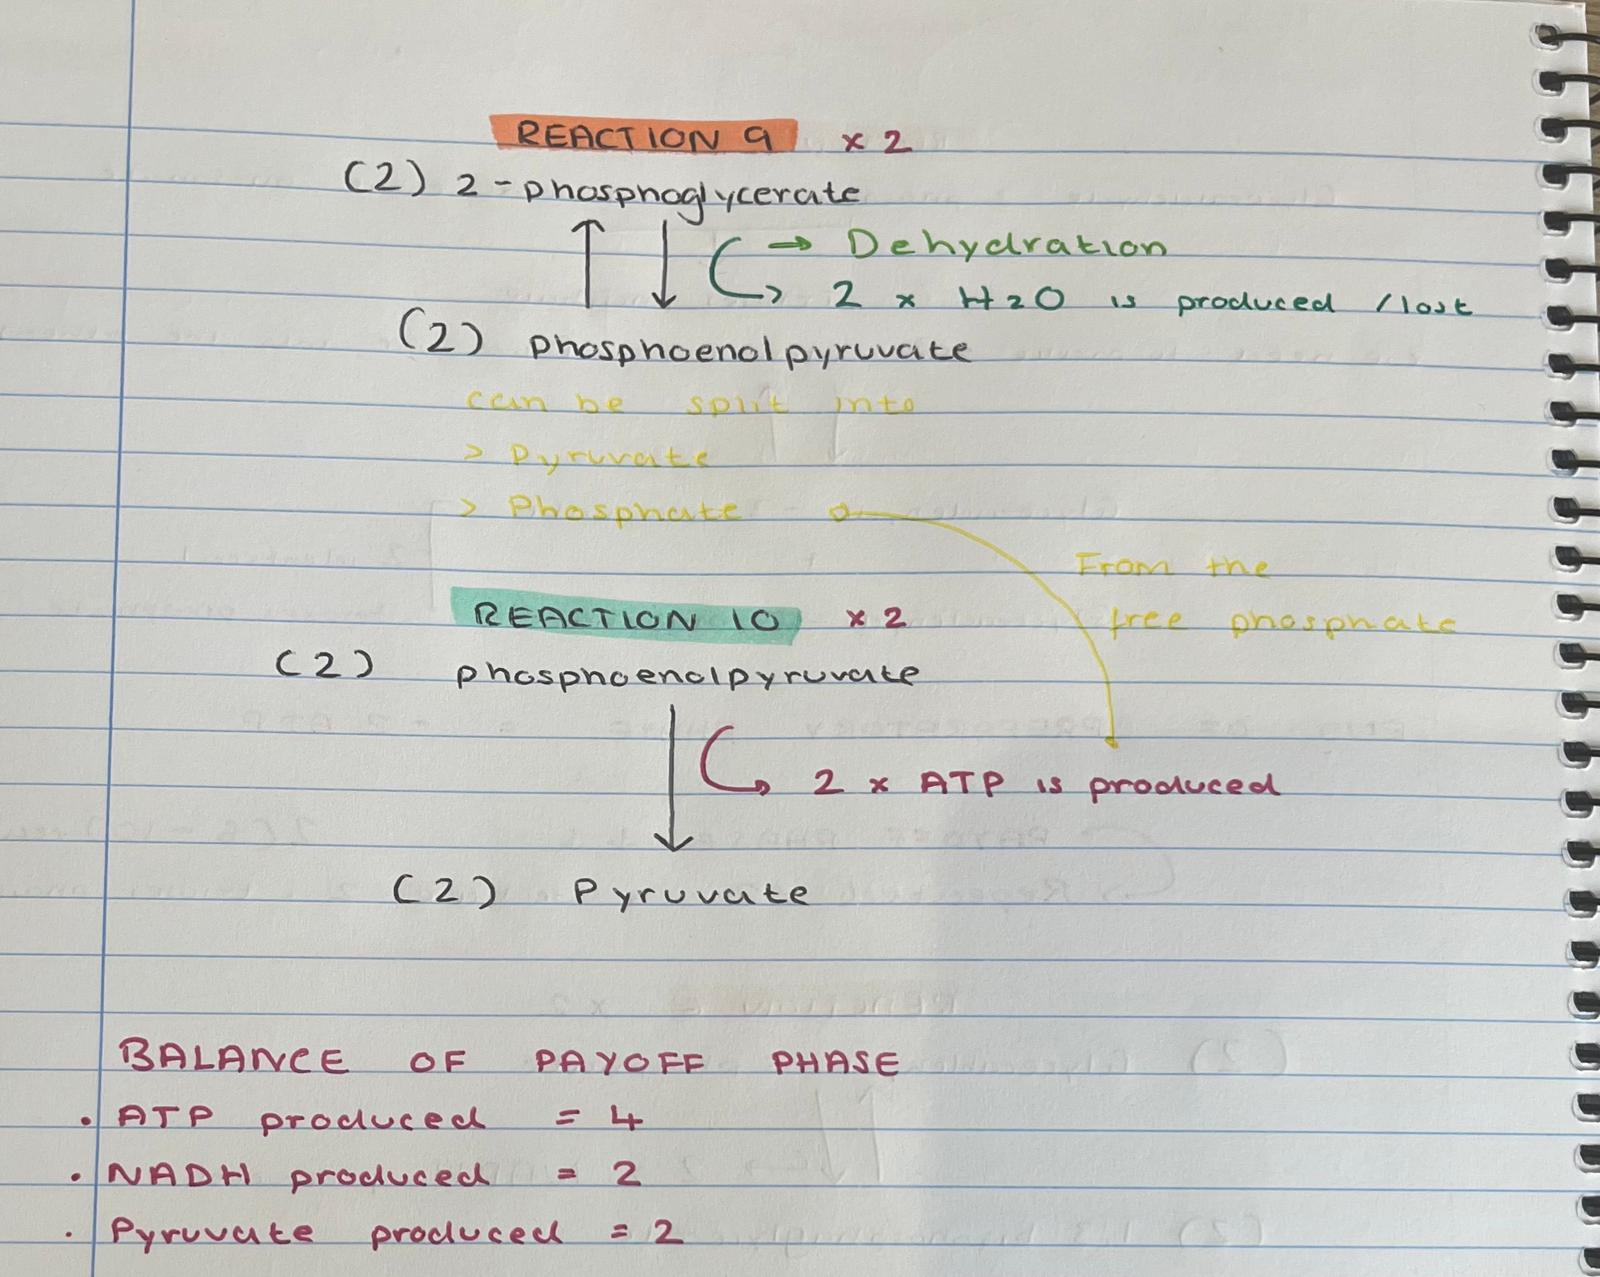 REACTION 9 x 2
(2) 2-phosphoglycerate
→ Dehydration
2 x H2O is produced /lost
(2) phosphoenolpyruvate
can be split into
> Pyruvate
> Phosphate
From the
free phosphate
REACTION 10 x 2
(2) phosphoenolpyruvate
2 x ATP is produced
(2) Pyruvate
BALANCE OF PAYOFF PHASE
. ATP produced = 4
. NADH produced = 2
. Pyruvate produced = 2